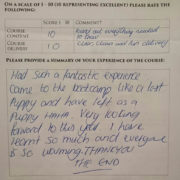 ON A SCALE OF 1 - 10 (10 REPRESENTING EXCELLENT) PLEASE RATE THE FOLLOWING:
SCORE 1-10 COMMENT?
COURSE CONTENT 10 everything needed to know
COURSE DELIVERY 10 clear, clean and fun delivery
PLEASE PROVIDE A SUMMARY OF YOUR EXPERIENCE OF THE COURSE:
Had such a fantastic experience
Came to the bootcamp like a lost
Puppy and have left as a
Puppy HAHA. Very looking
forward to this year. I have
learnt so much and everyone
is so warming. THANKYOU
THE END